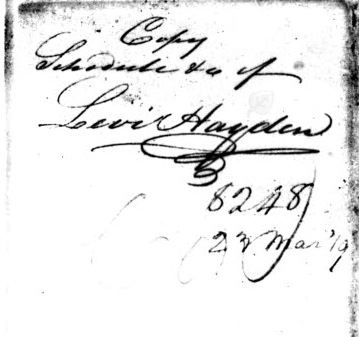 Copy
Schedule &c of
Levi Hayden
8248
23 Mar '19